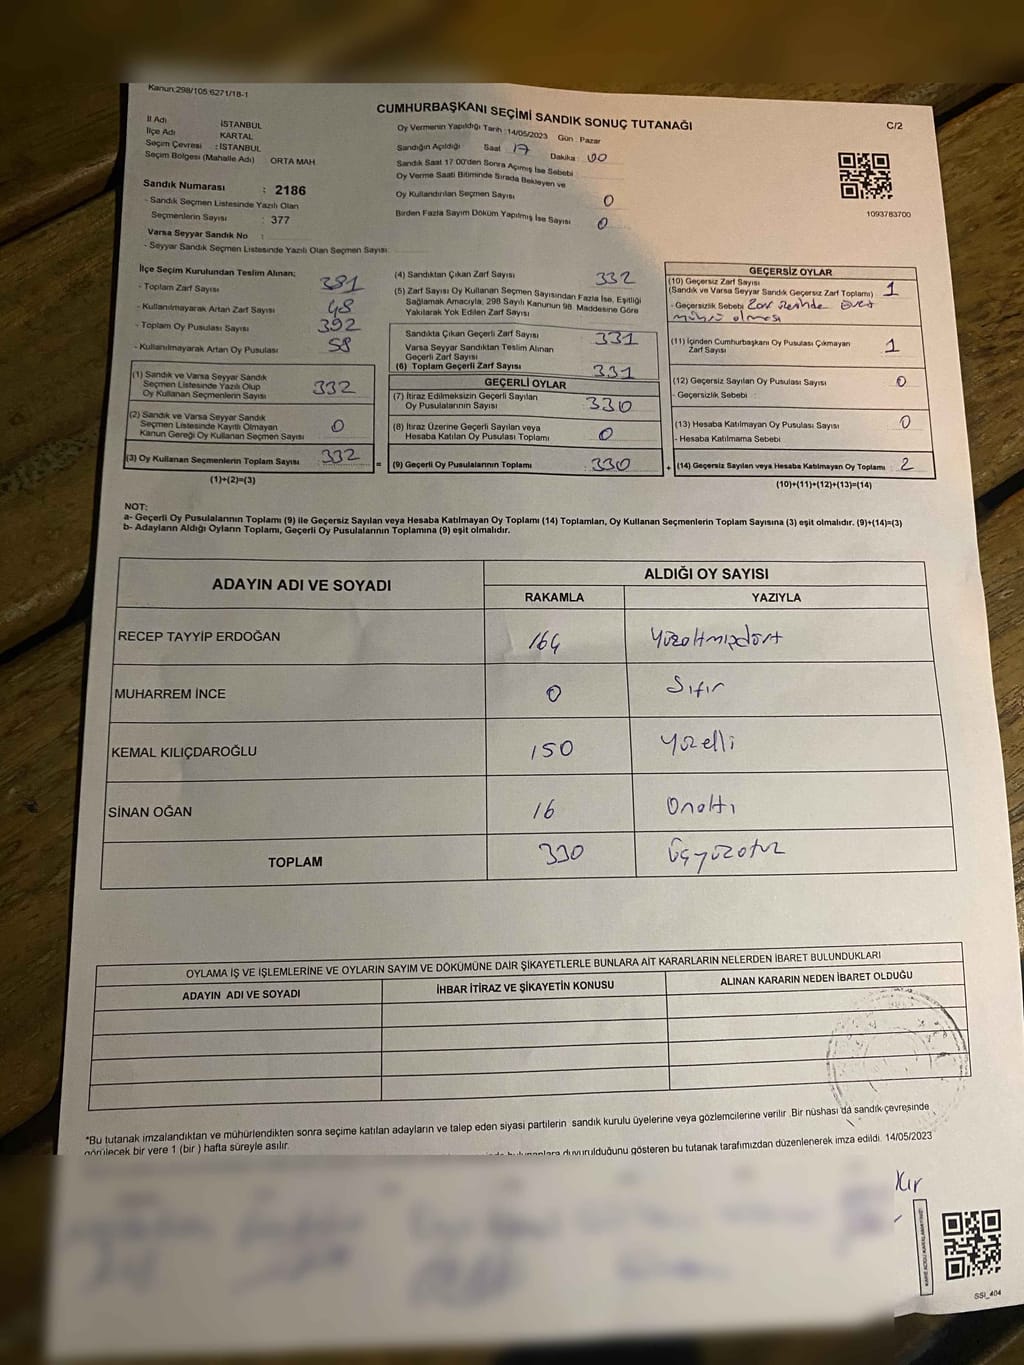 Kanun:298/105:6271/18-1
CUMHURBAŞKANI SEÇİMİ SANDIK SONUÇ TUTANAĞI
C/2
İl Adı İSTANBUL
İlçe Adı KARTAL
Seçim Çevresi : İSTANBUL
Seçim Bölgesi (Mahalle Adı) ORTA MAH
Sandık Numarası : 2186
- Sandık Seçmen Listesinde Yazılı Olan
Seçmenlerin Sayısı : 377
Varsa Seyyar Sandık No :
- Seyyar Sandık Seçmen Listesinde Yazılı Olan Seçmen Sayısı:
Oy Vermenin Yapıldığı Tarih :14/05/2023 Gün : Pazar
Sandığın Açıldığı Saat 17 Dakika : 00
Sandık Saat 17:00'den Sonra Açılmış İse Sebebi
Oy Verme Saati Bitiminde Sırada Bekleyen ve
Oy Kullandırılan Seçmen Sayısı 0
Birden Fazla Sayım Döküm Yapılmış İse Sayısı 0
1093783700
İlçe Seçim Kurulundan Teslim Alınan;
- Toplam Zarf Sayısı 381
- Kullanılmayarak Artan Zarf Sayısı 48
- Toplam Oy Pusulası Sayısı 392
- Kullanılmayarak Artan Oy Pusulası 58
(1) Sandık ve Varsa Seyyar Sandık
Seçmen Listesinde Yazılı Olup
Oy Kullanan Seçmenlerin Sayısı 332
(2) Sandık ve Varsa Seyyar Sandık
Seçmen Listesinde Kayıtlı Olmayan
Kanun Gereği Oy Kullanan Seçmen Sayısı 0
(3) Oy Kullanan Seçmenlerin Toplam Sayısı 332
(1)+(2)=(3)
(4) Sandıktan Çıkan Zarf Sayısı 332
(5) Zarf Sayısı Oy Kullanan Seçmen Sayısından Fazla İse, Eşitliği
Sağlamak Amacıyla, 298 Sayılı Kanunun 98. Maddesine Göre
Yakılarak Yok Edilen Zarf Sayısı
Sandıkta Çıkan Geçerli Zarf Sayısı 331
Varsa Seyyar Sandıktan Teslim Alınan
Geçerli Zarf Sayısı
(6) Toplam Geçerli Zarf Sayısı 331
GEÇERLİ OYLAR
(7) İtiraz Edilmeksizin Geçerli Sayılan
Oy Pusulalarının Sayısı 330
(8) İtiraz Üzerine Geçerli Sayılan veya
Hesaba Katılan Oy Pusulası Toplamı 0
= (9) Geçerli Oy Pusulalarının Toplamı : 330
GEÇERSİZ OYLAR
(10) Geçersiz Zarf Sayısı
(Sandık ve Varsa Seyyar Sandık Geçersiz Zarf Toplamı) 1
- Geçersizlik Sebebi Zarf üzerinde Evet
mührü olması
(11) İçinden Cumhurbaşkanı Oy Pusulası Çıkmayan
Zarf Sayısı 1
(12) Geçersiz Sayılan Oy Pusulası Sayısı 0
- Geçersizlik Sebebi :
(13) Hesaba Katılmayan Oy Pusulası Sayısı 0
- Hesaba Katılmama Sebebi
+ (14) Geçersiz Sayılan veya Hesaba Katılmayan Oy Toplamı : 2
(10)+(11)+(12)+(13)=(14)
NOT:
a- Geçerli Oy Pusulalarının Toplamı (9) ile Geçersiz Sayılan veya Hesaba Katılmayan Oy Toplamı (14) Toplamları, Oy Kullanan Seçmenlerin Toplam Sayısına (3) eşit olmalıdır. (9)+(14)=(3)
b- Adayların Aldığı Oyların Toplamı, Geçerli Oy Pusulalarının Toplamına (9) eşit olmalıdır.
ADAYIN ADI VE SOYADI ALDIĞI OY SAYISI
RAKAMLA YAZIYLA
RECEP TAYYİP ERDOĞAN 164 Yüzaltmışdört
MUHARREM İNCE 0 Sıfır
KEMAL KILIÇDAROĞLU 150 Yüzelli
SİNAN OĞAN 16 Onaltı
TOPLAM 330 Üçyüzotuz
OYLAMA İŞ VE İŞLEMLERİNE VE OYLARIN SAYIM VE DÖKÜMÜNE DAİR ŞİKAYETLERLE BUNLARA AİT KARARLARIN NELERDEN İBARET BULUNDUKLARI
ADAYIN ADI VE SOYADI İHBAR İTİRAZ VE ŞİKAYETİN KONUSU ALINAN KARARIN NEDEN İBARET OLDUĞU
*Bu tutanak imzalandıktan ve mühürlendikten sonra seçime katılan adayların ve talep eden siyasi partilerin sandık kurulu üyelerine veya gözlemcilerine verilir .Bir nüshası da sandık çevresinde
görülecek bir yere 1 (bir ) hafta süreyle asılır.
duyurulduğunu gösteren bu tutanak tarafımızdan düzenlenerek imza edildi. 14/05/2023
Kır
SSI_404